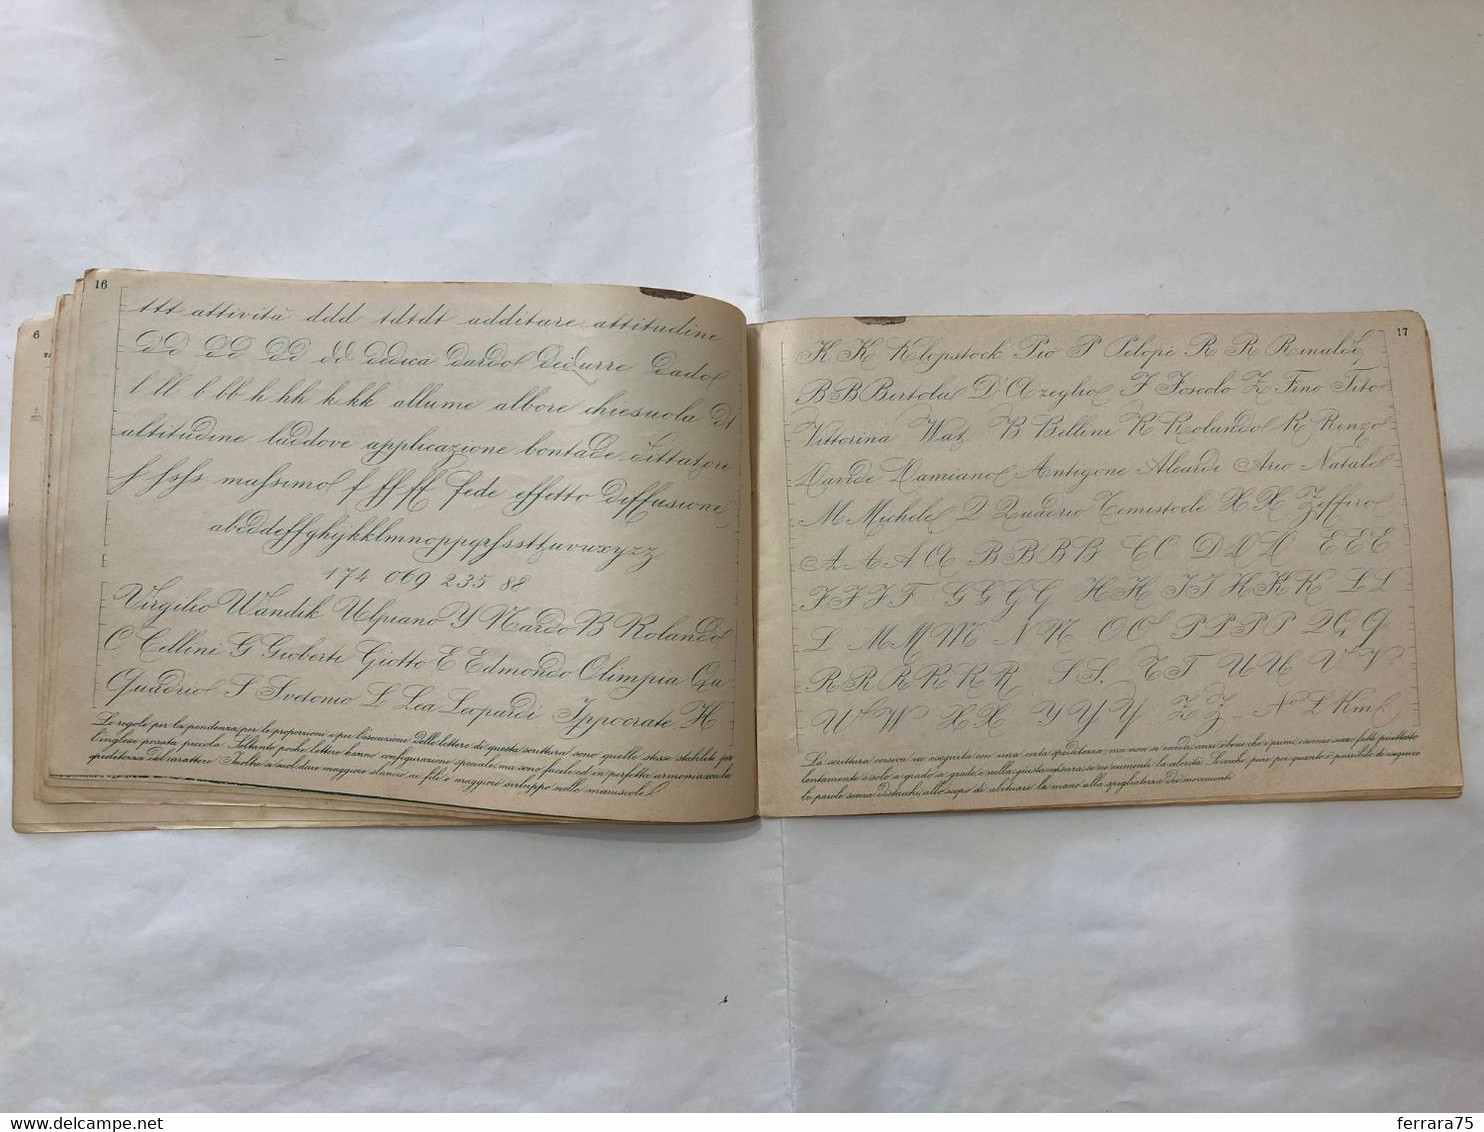 6
16
ttt attività ddd tdtdt additare attitudine
dd dd dd dd dedica dardo dedurre dado
l ll b bb h hh k kk allume albore chiesuola di
altitudine laddove applicazione bontade dittatore
f fsfs massimo f ff ff fede effetto diffusione
174 069 235 88
Virgilio Wandik Ulpiano Y Nardo B Rolando
C Cellini G Gioberti Giotto E Edmondo Olimpia Qu
Quadrio S Svetonio L Lea Leopardi Ippocrate H
Le regole per la pendenza, per le proporzioni e per l'esecuzione delle lettere di questa scrittura sono quelle stesse stabilite per
l'inglese posata piccola. Soltanto poche lettere hanno configurazione speciale, ma sono facili ed in perfetta armonia con la
speditezza del carattere. Inoltre si suol dare maggiore slancio ai fili e maggiore sviluppo nelle maiuscole
17
K K Klopstock Pio P Pelope R R Rinaldi
B B Bertola D'Azeglio F Foscolo Z Fino Tito
Vittorina Wat B Bellini R Rolando R Renzo
Davide Damiano Antigone Aleardi Ario Natale
M Michele Q Quadrio Temistocle X X Zeffiro
A A A A B B B B C C D D D E E E
F F F F G G G G H H I I K K K L L
L M M M N N O O P P P P Q Q Q
R R R R R R S S. T T U U V V
U W X X Y Y Y Z Z - No L Km
La scrittura corsiva va eseguita con una certa speditezza; ma non si creda che i primi esercizi sian fatti piuttosto
lentamente e solo a grado a grado, e nella giusta misura, se ne aumenti la celerità. Si cerchi pure per quanto è possibile di eseguire
le parole senza distacchi, allo scopo di abituare la mano alla spigliatezza dei movimenti
delcampe.net
ferrara75